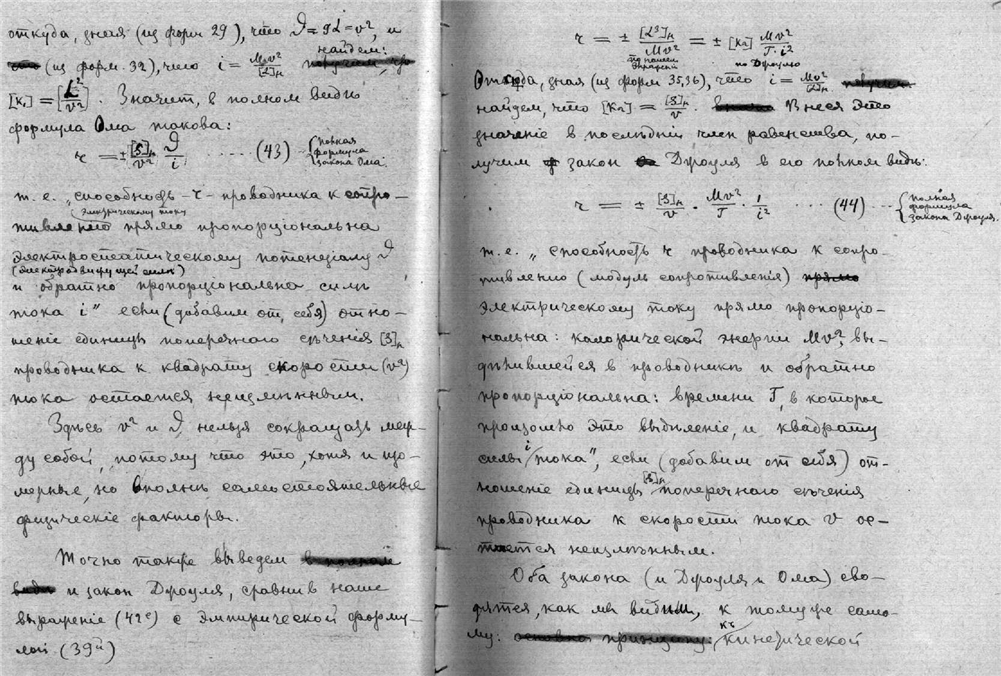 откуда, зная (из форм 29), что Э = 𝒫L = v², и
(из форм. 32), что i = Mv²/[L]н найдем:
[K₁] = [L²/v²]. Значит, в полном виде
формула Ома такова:
r = ± [S]н/v² · Э/i ····· (43) {полная формула закона Ома.
т. е. „способность – r – проводника к сопро-
тивлению электрическому току прямо пропорціональна
электростатическому потенціалу Э
(электродвижущей силе)
и обратно пропорціональна силе
тока i“ если (добавим от себя) отно-
шеніе единицы поперечного сѣченія [S]н
проводника к квадрату скорости (v²)
тока остается неизмѣнным.
Здѣсь v² и Э нельзя сокращать меж-
ду собой, потому что это, хотя и
мерные, но вполнѣ самостоятельные
физическіе факторы.
Точно также выведем
и закон Джоуля, сравнив наше
выраженіе (42е) с эмпирической форму-
лой (39й)
r = ± [L³]н/Mv² = ± [K₂] Mv²/T·i²
по нашей по Джоулю
Откуда, зная (из форм 35,36), что i = Mv²/[L]н
найдем, что [K₂] = [S]н/v. Внеся это
значеніе в послѣдній член равенства, по-
лучим закон Джоуля в его полном видѣ:
r = ± [S]н/v · Mv²/T · 1/i² ···· (44) {полная формула закона Джоуля.
т. е. „способность r проводника к сопро-
тивленію (модуль сопротивленія)
электрическому току прямо пропорціо-
нальна: калорической энергіи Mv², вы-
дѣлившейся в проводникѣ и обратно
пропорціональна: времени T, в которое
произошло это выдѣленіе, и квадрату
силы i тока“, если (добавим от себя) от-
ношеніе единицы [S]н поперечного сѣченія
проводника к скорости тока v ос-
тается неизмѣнным.
Оба закона (и Джоуля и Ома) сво-
дятся, как мы видим, к тому же само-
му: къ кинетической